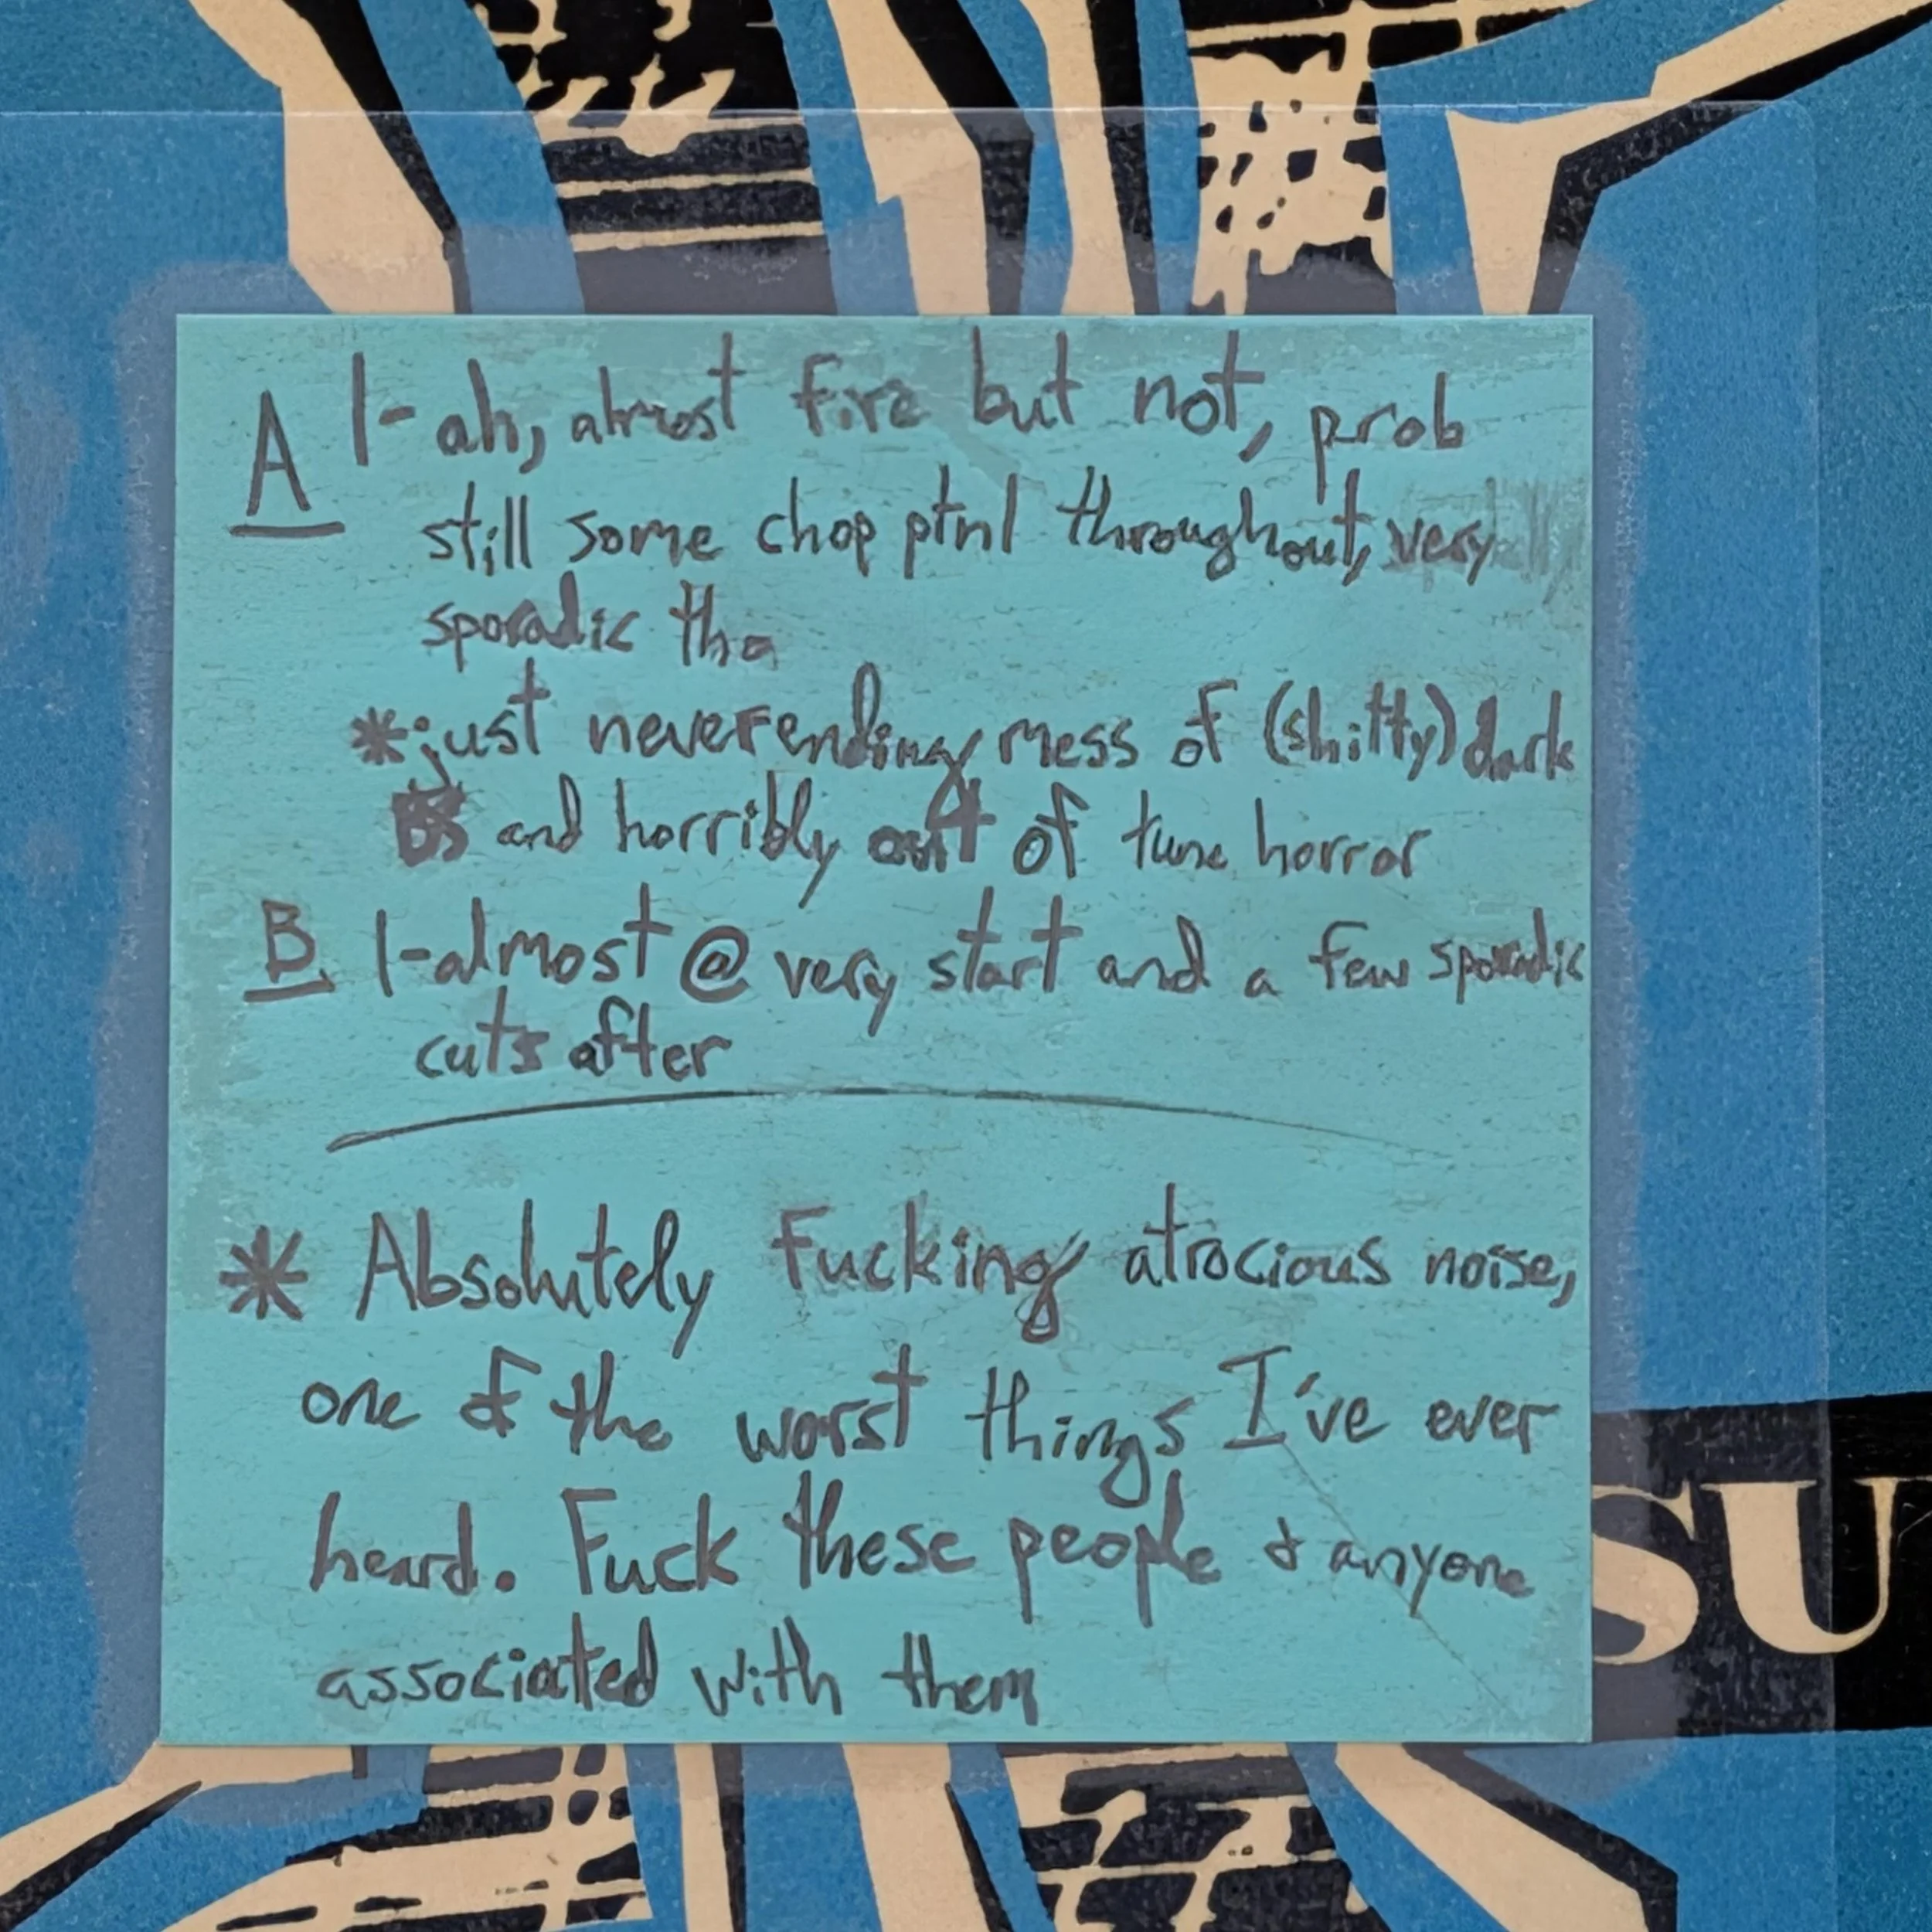 A 1- ah, almost fire but not, prob
still some chop ptnl throughout, very
sporadic tho
*just neverending mess of (shitty) dark
and horribly out of tune horror
B 1- almost @ very start and a few sporadic
cuts after
* Absolutely Fucking atrocious noise,
one of the worst things I've ever
heard. Fuck these people & anyone
associated with them
SU